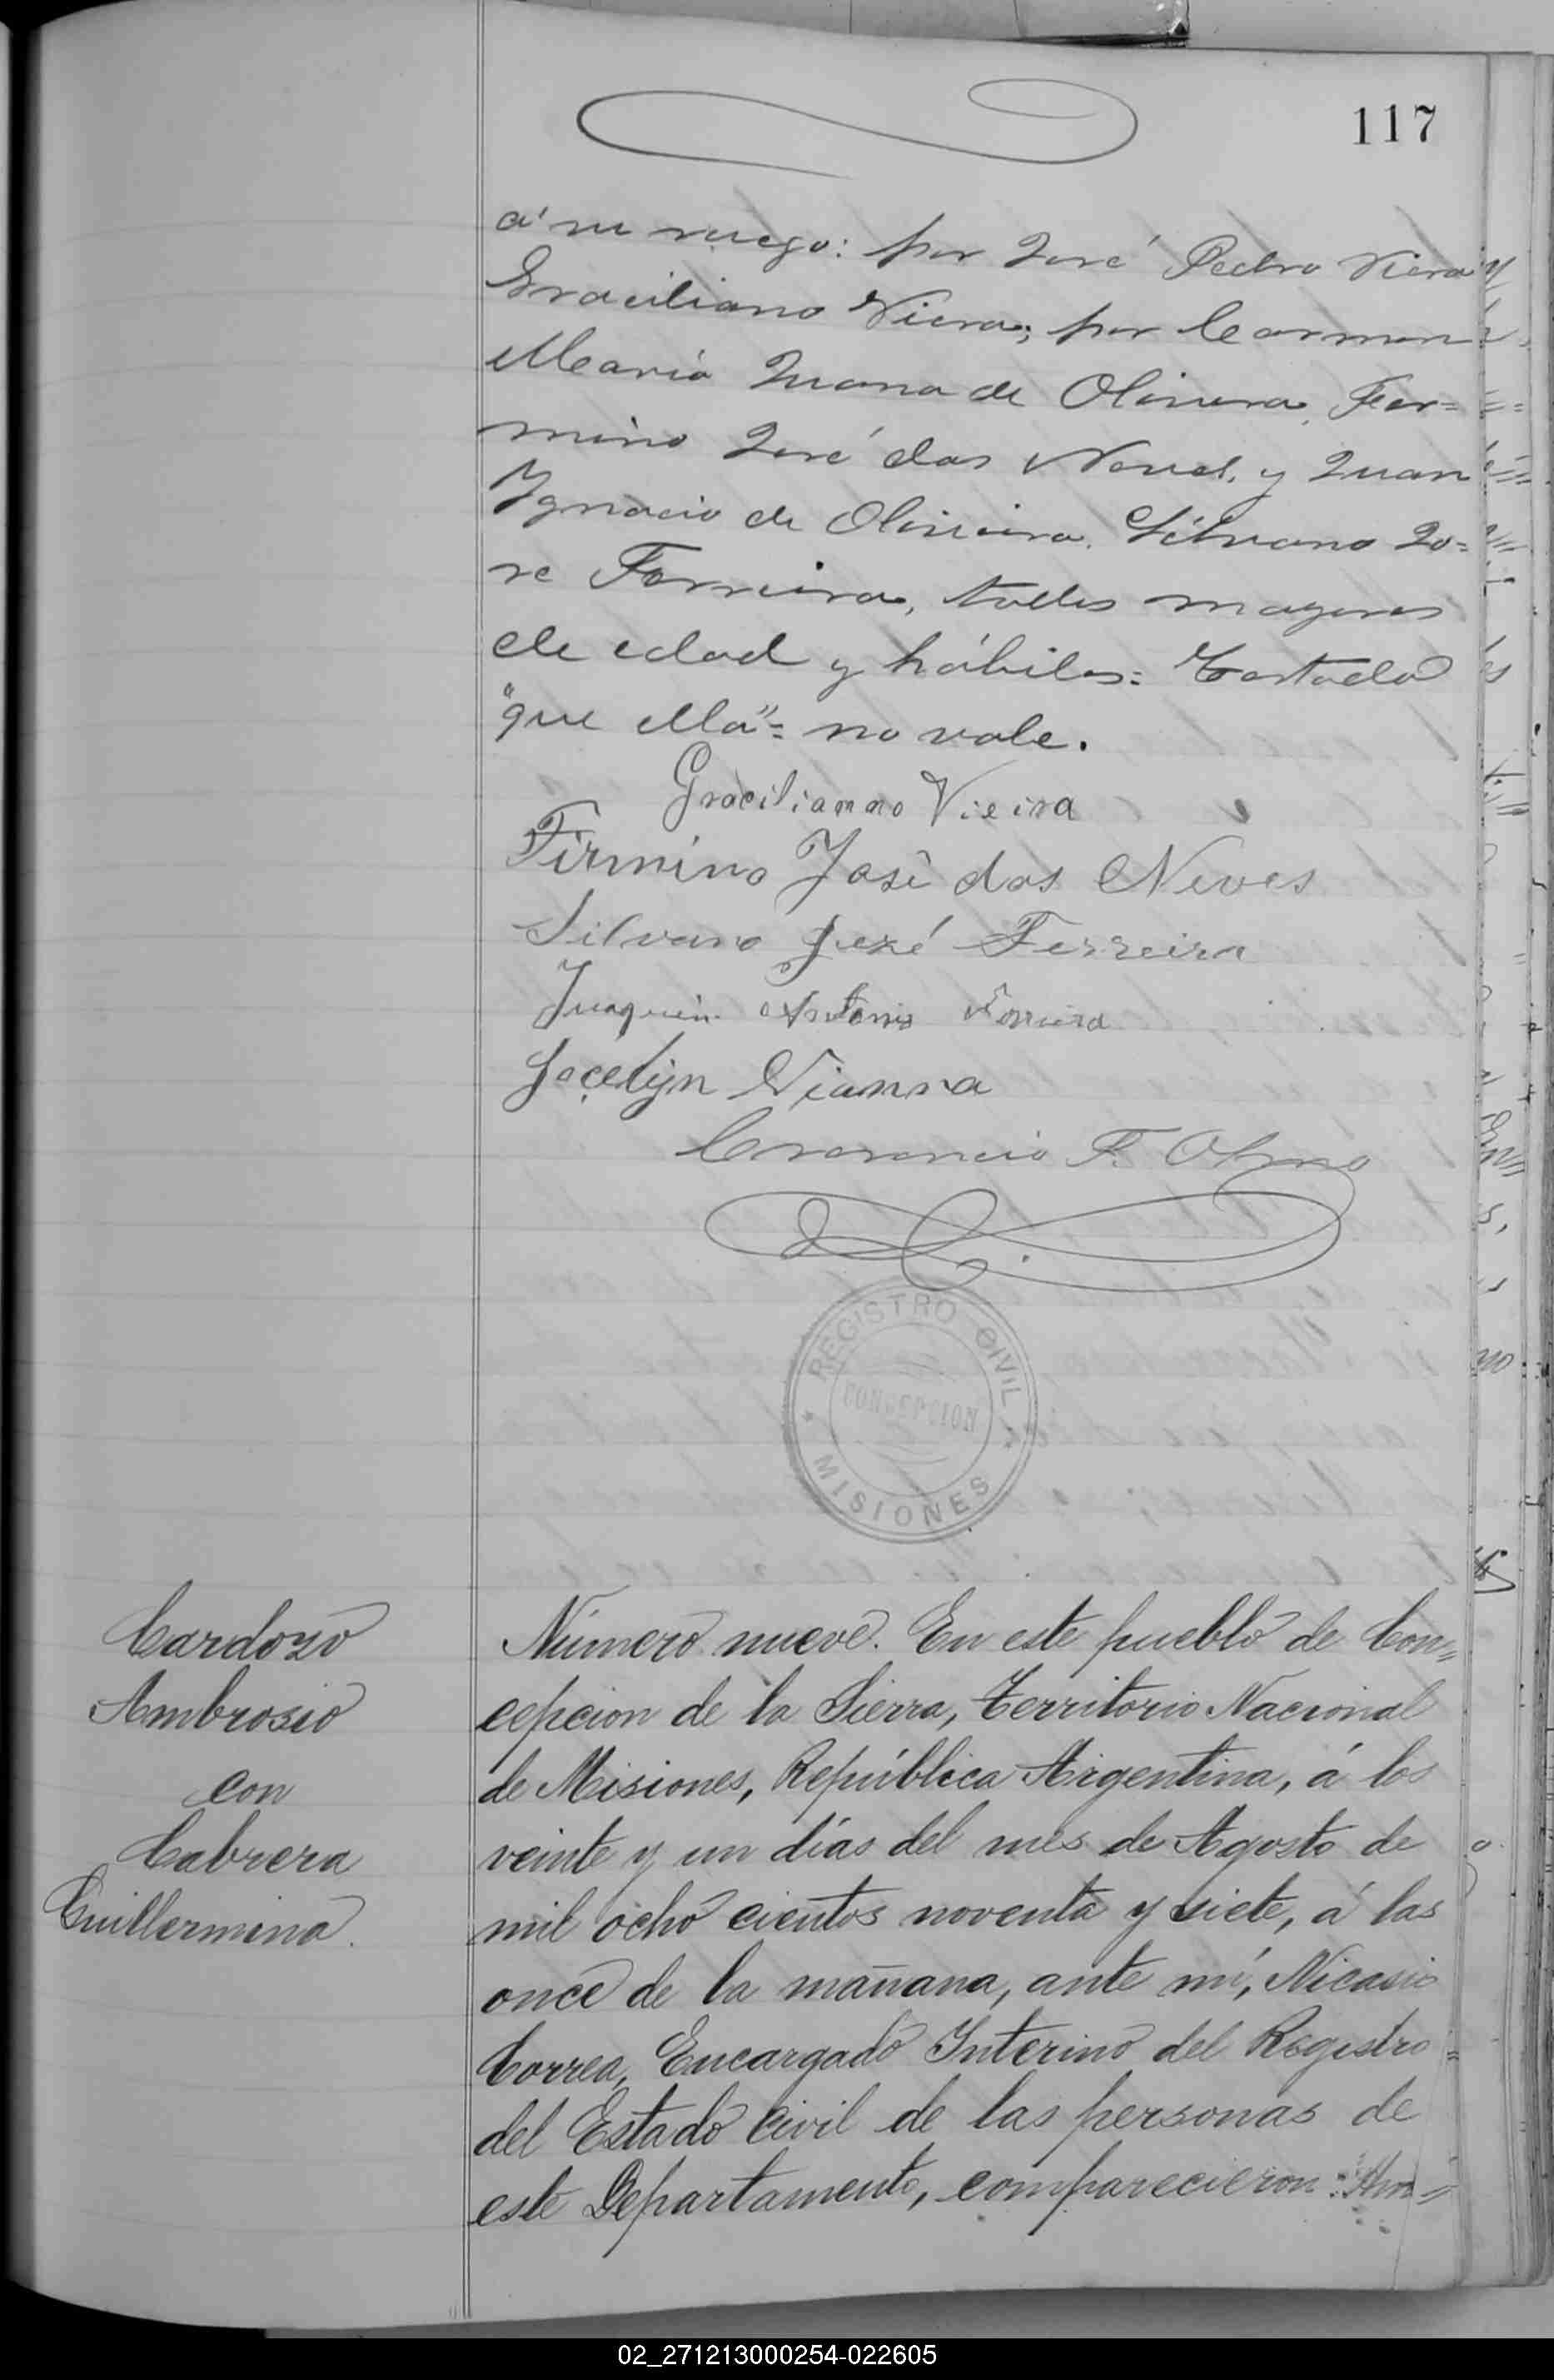 117
á su ruego: por José Pedro Viera
Graciliano Viera; por Carmen
Maria Juana de Olivera, Fer=
mino José das Neves, y Juan
Ygnacio de Oliveira. Silvano Jo=
se Ferreira, todos mayores
de edad y hábiles= Testado
"que ella"= no vale.
Gracilianno Vieira
Firmino José das Neves
Silvano José Ferreira
Juaquin Antonio Ferreira
Jocelyn Vianna
Crecencio F. Olmo
REGISTRO CIVIL
CONCEPCION
MISIONES
Cardozo
Ambrosio
con
Cabrera
Guillermina.
Número nueve. En este pueblo de Con=
cepcion de la Sierra, Territorio Nacional
de Misiones, República Argentina, á los
veinte y un días del mes de Agosto de
mil ocho cientos noventa y siete, á las
once de la mañana, ante mí, Nicasio
Correa, Encargado Interino del Registro
del Estado Civil de las personas de
este Departamento, comparecieron: Am=
02_271213000254-022605